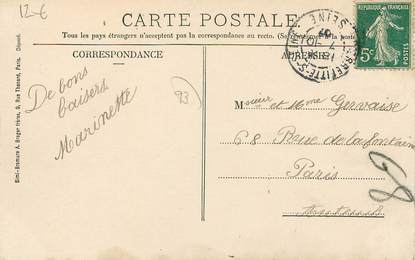 12-6
CARTE POSTALE
Tous les pays étrangers n'acceptent pas la correspondance au recto. (Se
CORRESPONDANCE
ADRESSE
5c
De bons
baisers
Marinette
93
Monsieur et Mme Gervaise
68 Rue de la Fontaine
Paris
Auteuil
8
Simi-Bromure A. Breger frères, 9, Rue Thénard, Paris. Déposé.